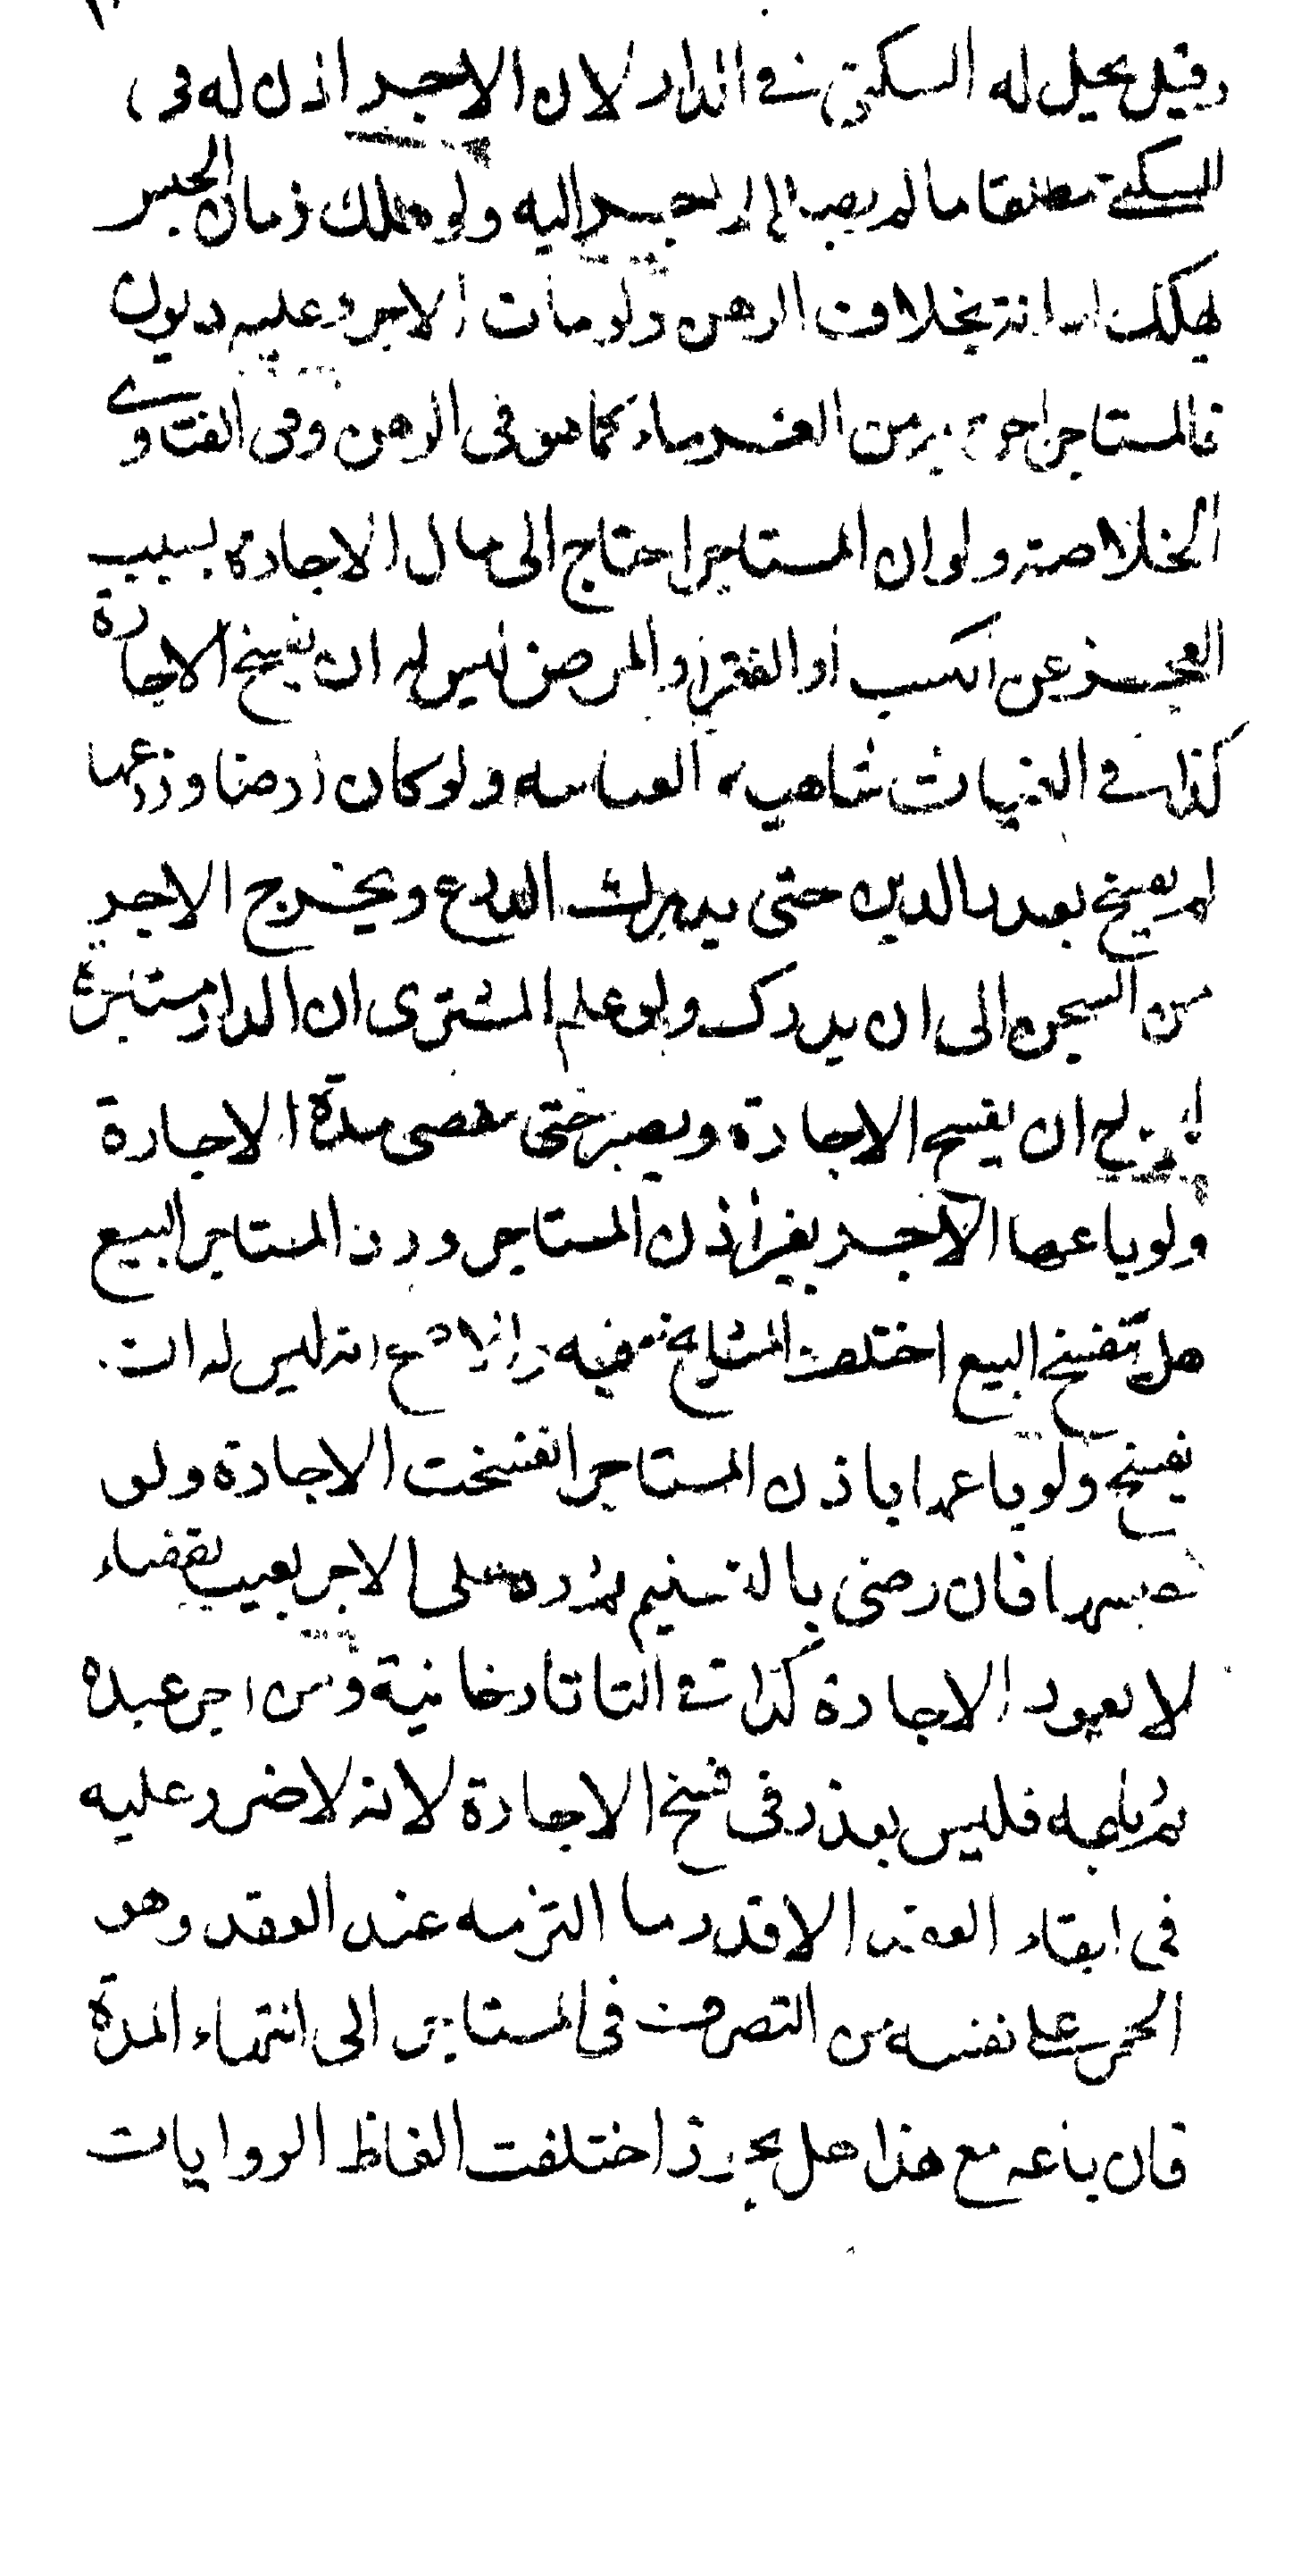 وقيل يحيل له السكنى في الدار لان الاجر اذن له في
السكنى مطلقا ما لم يصل اليه ولو هلك زمان الحبس
يهلك امانة بخلاف الرهن ولو مات الاجر وعليه ديون
فالمستاجر احق به من الغرماء كما هو في الرهن وفى الفتاوى
الخلاصة ولو ان المستاجر احتاج الى مال الاجارة بسبب
العجز عن الكسب او الفقر او المرض ليس له ان يفسخ الاجارة
كذا في الغياث ولو كان ارضا وزرعها
لم يفسخ بعد بالدين حتى يدرك الزرع ويخرج الاجر
من السجن الى ان يدرك ولو علم المشترى ان الدار مستاجرة
ان يفسخ الاجارة ويصبر حتى تنقضى مدة الاجارة
ولو باعها الاجر بغير اذن المستاجر ورد المستاجر البيع
هل تنفسخ البيع اختلف المشايخ فيه والاصح انه ليس له ان
يفسخ ولو باعها باذن المستاجر انفسخت الاجارة ولو
حبسها فان رضى بالتسليم ثم رده على الاجر بعيب بقضاء
لا يعود الاجارة كذا في التاتارخانية ومن اجر عبده
ثم باعه فليس بعذر فى فسخ الاجارة لانه لا ضرر عليه
فى ابقاء العقد الا قدر ما التزمه عند العقد وهو
الحجر على نفسه من التصرف فى المستاجر الى انتهاء المدة
فان باعه مع هذا هل يجوز اختلفت الفاظ الروايات